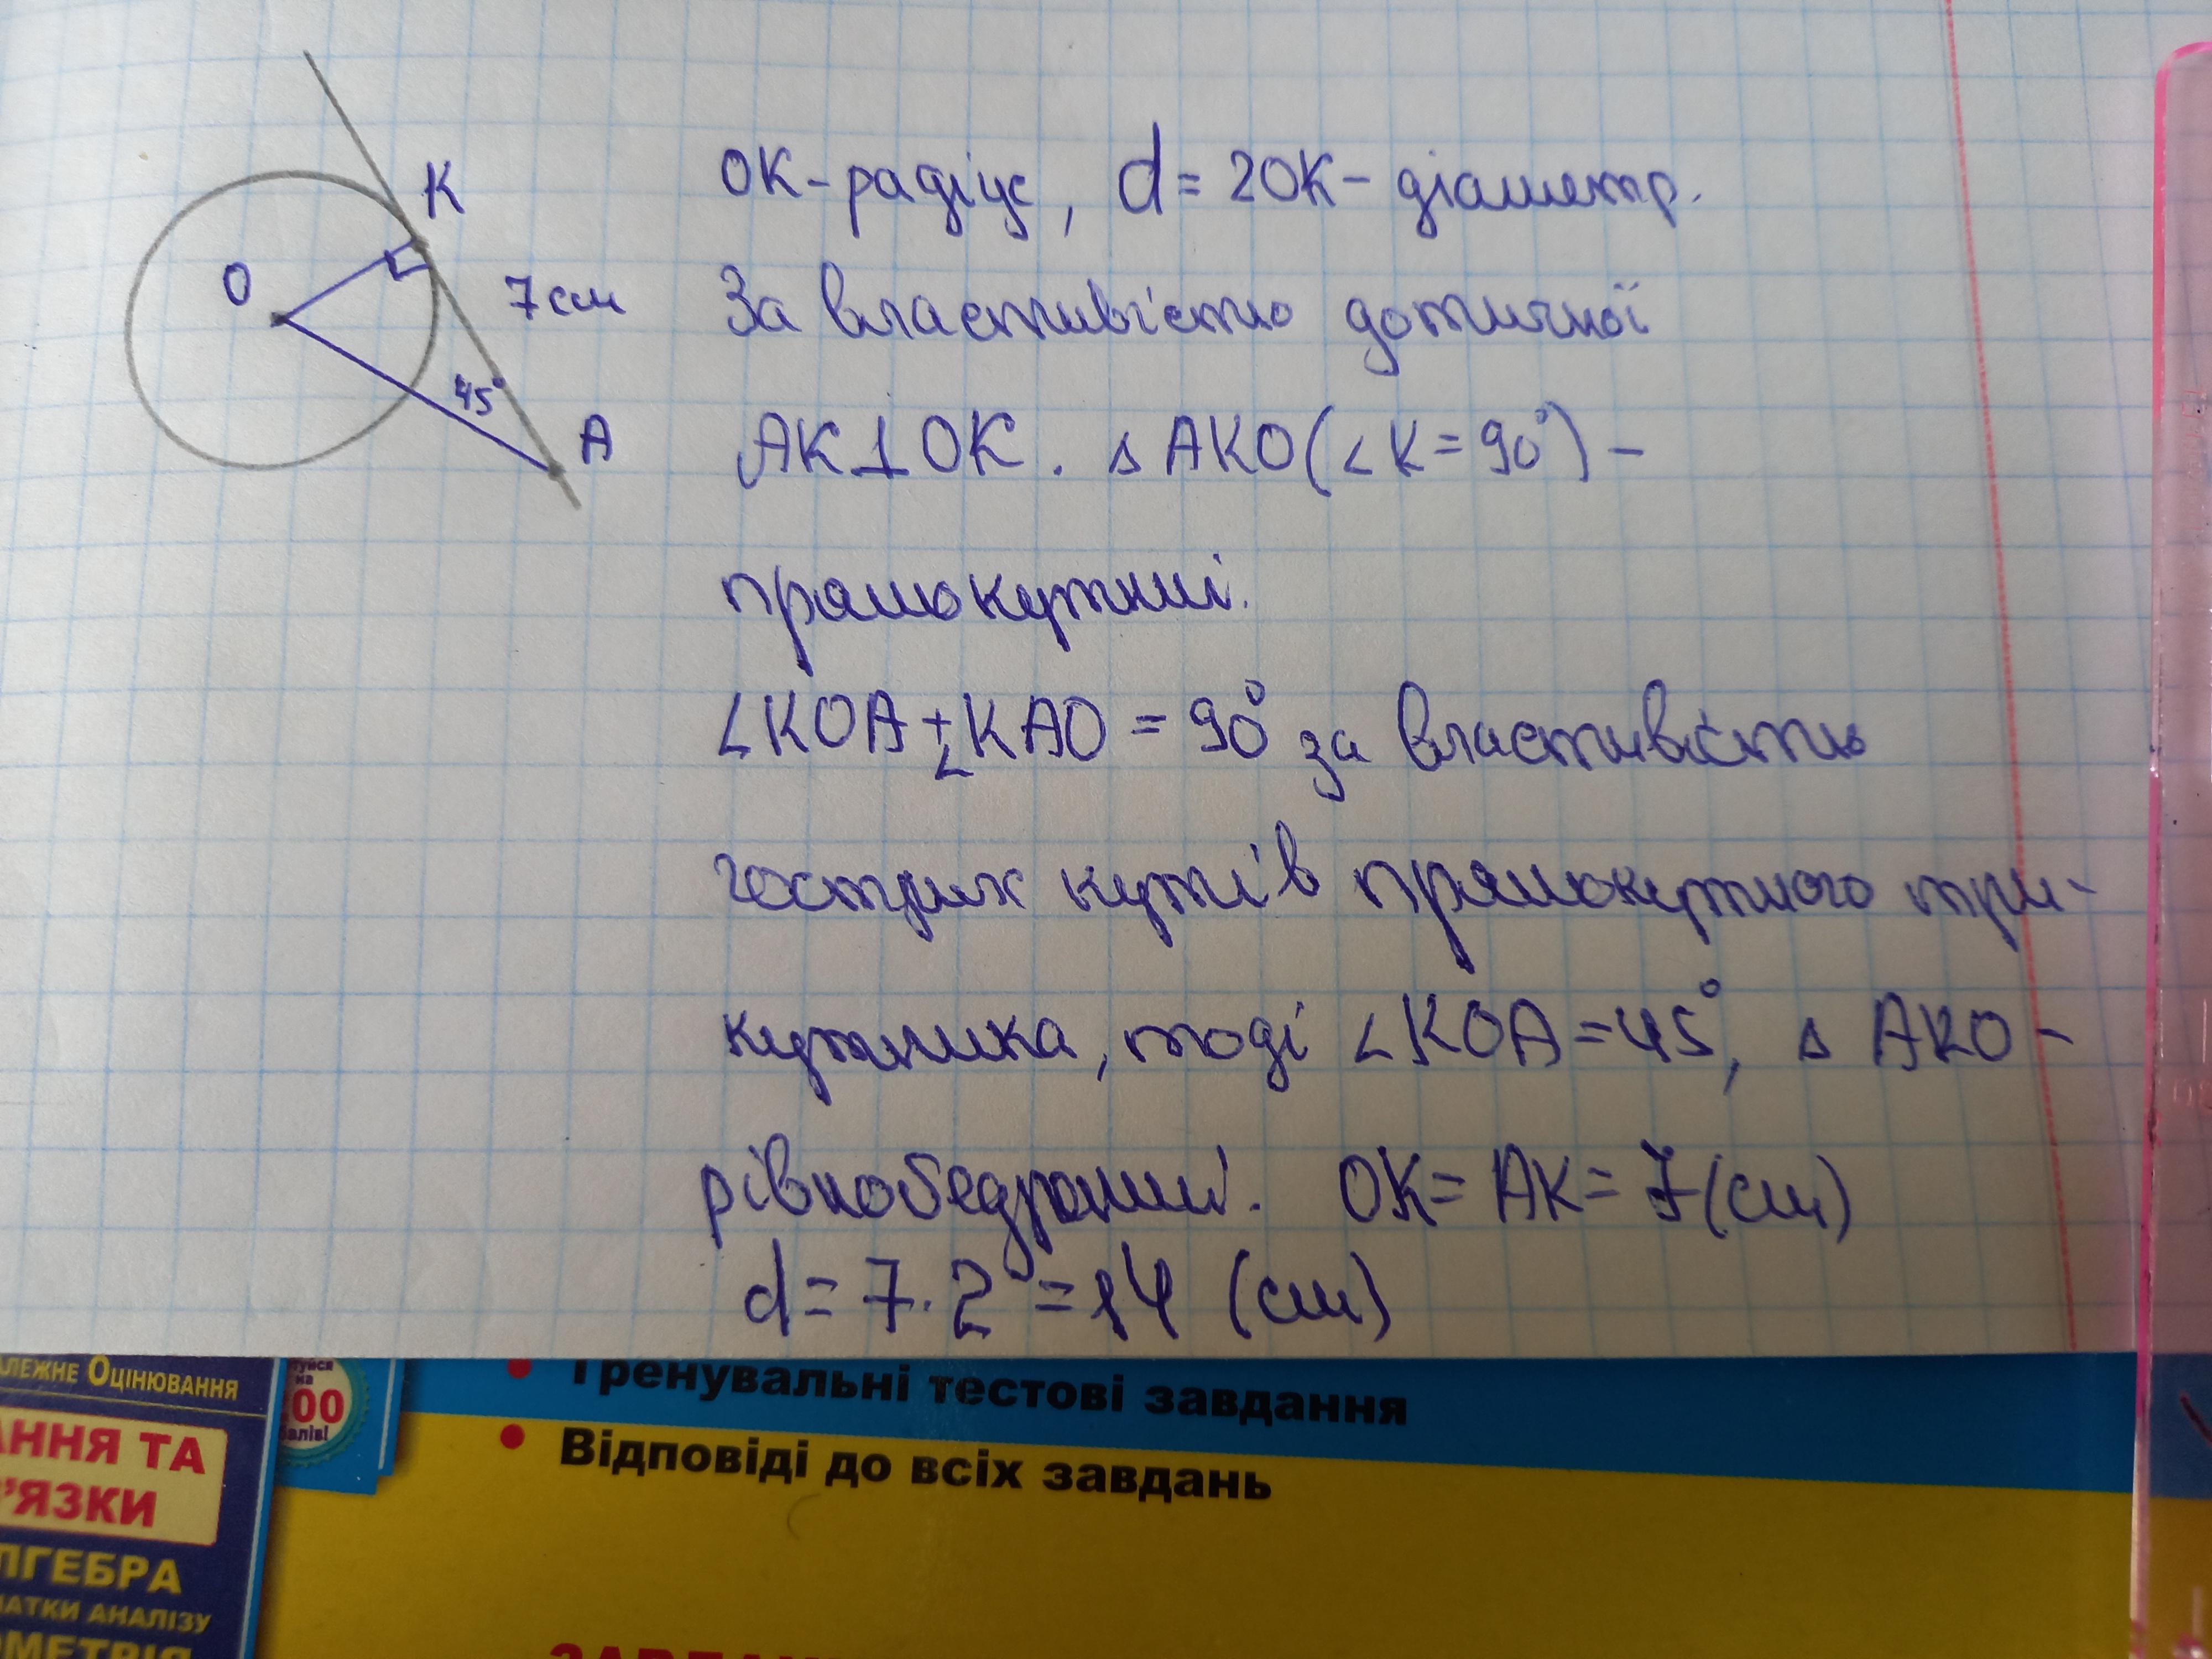 K
O
7см
45°
A
OK - радіус, d = 2OK - діаметр.
За властивістю дотичної
AK ⊥ OK. ▵ AKO (∠K = 90°) -
прямокутний.
∠KOA + ∠KAO = 90° за властивістю
гострих кутів прямокутного три-
кутника, тоді ∠KOA = 45°, ▵ AKO -
рівнобедрений. OK = AK = 7 (см)
d = 7 · 2 = 14 (см)
ЛЕЖНЕ ОЦІНЮВАННЯ
на
00
балів!
АННЯ ТА
'ЯЗКИ
ЛГЕБРА
АТКИ АНАЛІЗУ
ОМЕТРІЯ
• Тренувальні тестові завдання
• Відповіді до всіх завдань